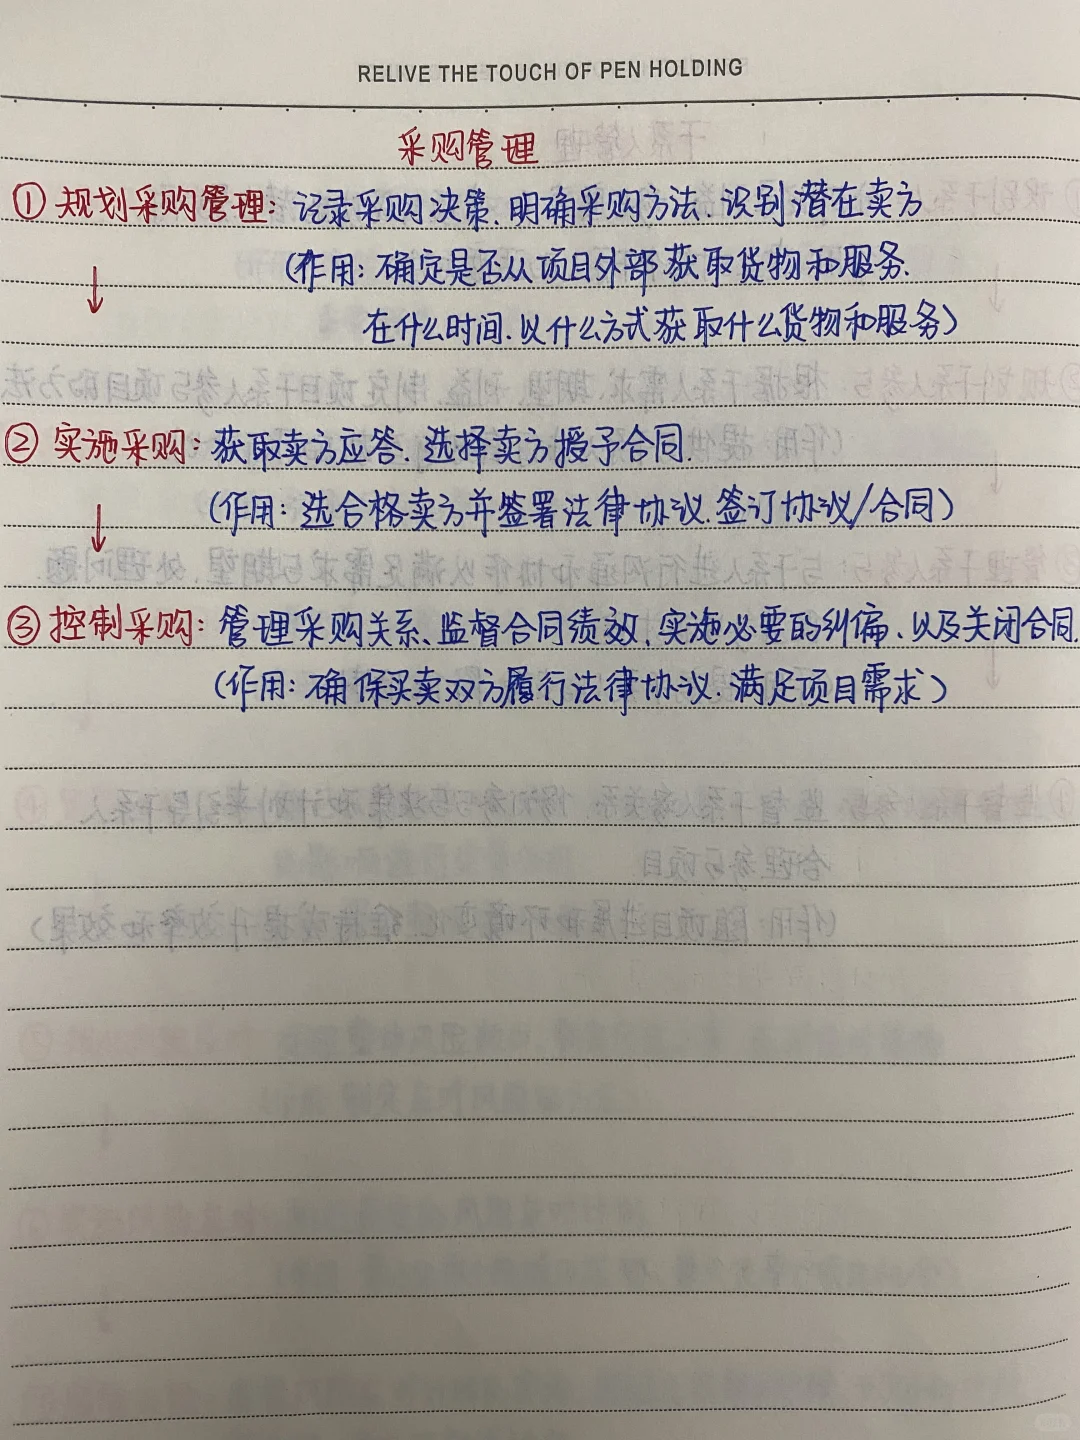 RELIVE THE TOUCH OF PEN HOLDING
采购管理
① 规划采购管理: 记录采购决策、明确采购方法、识别潜在卖方
(作用: 确定是否从项目外部获取货物和服务.
在什么时间、以什么方式获取什么货物和服务)
② 实施采购: 获取卖方应答、选择卖方授予合同.
(作用: 选合格卖方并签署法律协议.签订协议/合同)
③ 控制采购: 管理采购关系、监督合同绩效、实施必要的纠偏、以及关闭合同.
(作用: 确保买卖双方履行法律协议.满足项目需求)